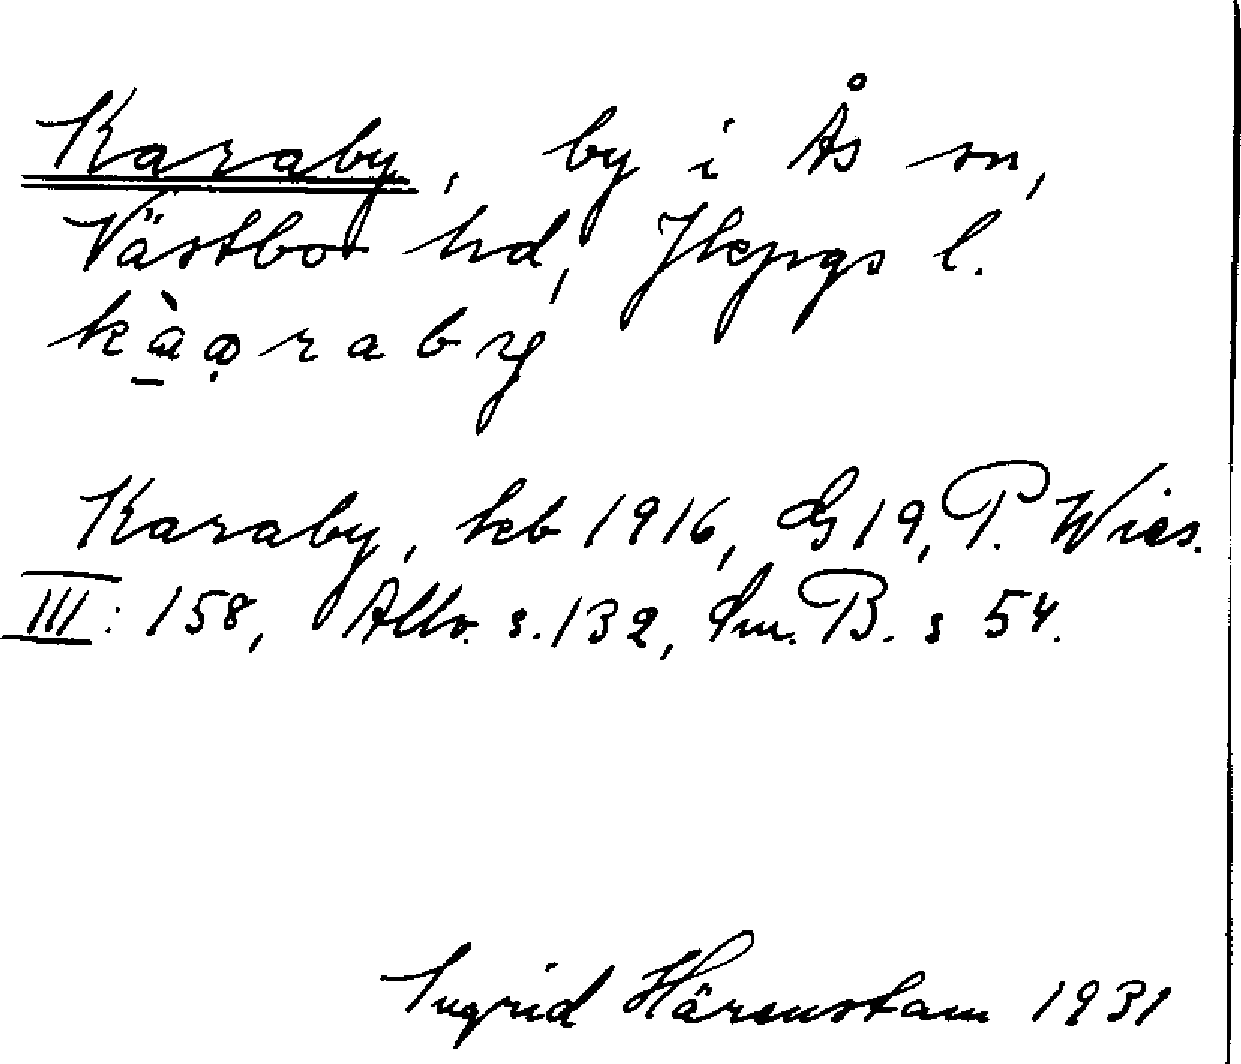 Karaby, by i Ås sn,
Västbo hd, Jkpgs l.
kàaraby
Karaby, kb 1916, G 19, P. Wies.
III: 158, Allv. s. 132, Sm. B. s 54.
Ingrid Härenstam 1931